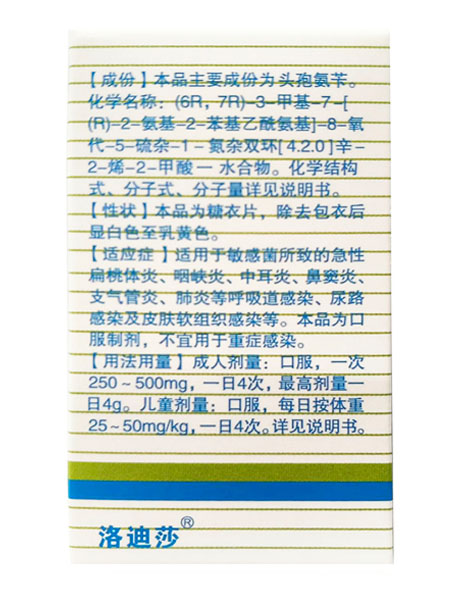 【成份】本品主要成份为头孢氨苄。
化学名称：(6R，7R)-3-甲基-7-[
(R)-2-氨基-2-苯基乙酰氨基]-8-氧
代-5-硫杂-1-氮杂双环[4.2.0]辛-
2-烯-2-甲酸一水合物。化学结构
式、分子式、分子量详见说明书。
【性状】本品为糖衣片，除去包衣后
显白色至乳黄色。
【适应症】适用于敏感菌所致的急性
扁桃体炎、咽峡炎、中耳炎、鼻窦炎、
支气管炎、肺炎等呼吸道感染、尿路
感染及皮肤软组织感染等。本品为口
服制剂，不宜用于重症感染。
【用法用量】成人剂量：口服，一次
250~500mg，一日4次，最高剂量一
日4g。儿童剂量：口服，每日按体重
25~50mg/kg，一日4次。详见说明书。
洛迪莎®